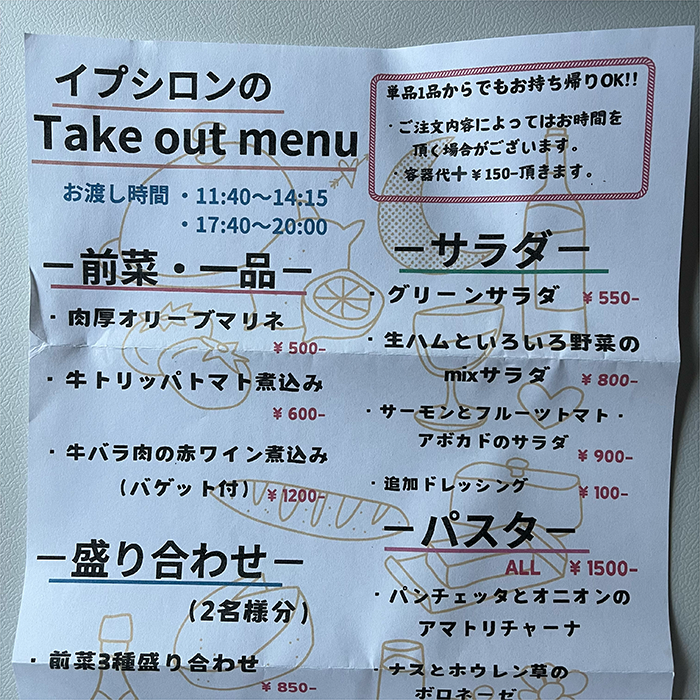 イプシロンの
Take out menu
お渡し時間・11:40〜14:15
・17:40〜20:00
単品1品からでもお持ち帰りOK!!
・ご注文内容によってはお時間を
頂く場合がございます。
・容器代＋¥150-頂きます。
－前菜・一品－
・肉厚オリーブマリネ
¥500-
・牛トリッパトマト煮込み
¥600-
・牛バラ肉の赤ワイン煮込み
（バゲット付）¥1200-
－盛り合わせ－
（2名様分）
・前菜3種盛り合わせ
¥850-
－サラダ－
・グリーンサラダ ¥550-
・生ハムといろいろ野菜の
mixサラダ ¥800-
・サーモンとフルーツトマト・
アボカドのサラダ ¥900-
・追加ドレッシング ¥100-
－パスタ－
ALL ¥1500-
・パンチェッタとオニオンの
アマトリチャーナ
・ナスとホウレン草の
ボロネーゼ